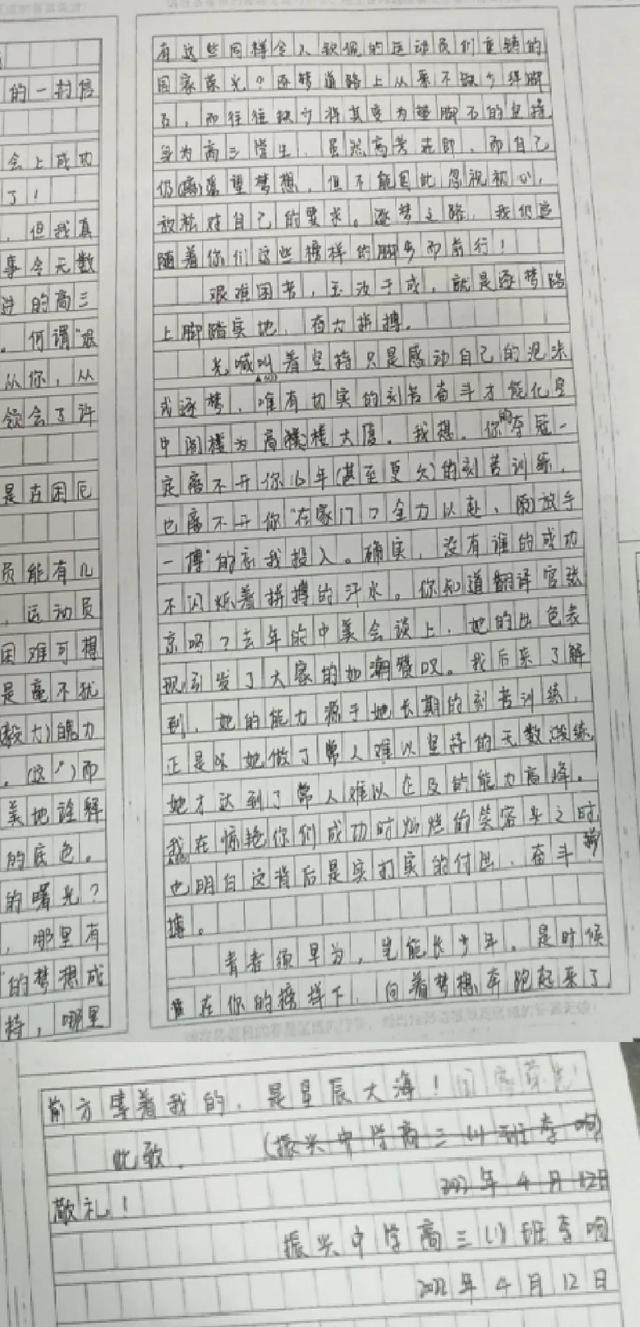 的一封信
会上成功
了！
，但我真
事令无数
进的高三
。何谓“艰
从你，从
领会了许
是在困厄
员能有几
，运动员
困难可想
是毫不犹
力
。而
美地诠释
的底色。
的曙光？
，哪里有
的梦想成
持，哪里
有这些同样令人钦佩的运动员们重铸的
国家荣光？逐梦道路上从来不缺少绊脚
石，而往往缺少将其变为垫脚石的坚持
身为高三学生，虽然高考在即，而自己
仍落望梦想，但不能因此忽视初心，
放松对自己的要求。逐梦之路，我们追
随着你们这些榜样的脚步而前行！
艰难困苦，玉汝于成，就是逐梦路
上脚踏实地，奋力拼搏。
光喊叫着坚持只是感动自己的泡沫
式逐梦，唯有切实的刻苦奋斗才能化空
中阁楼为高楼大厦。我想，你的夺冠一
定离不开你16年（甚至更久）的刻苦训练，
也离不开你“在家门口全力以赴、放手
一搏”的忘我投入。确实，没有谁的成功
不闪烁着拼搏的汗水。你知道翻译官张
京吗？去年的中美会谈上，她的出色表
现引发了大家的如潮赞叹。我后来了解
到，她的能力源于她长期的刻苦训练，
正是以她做了常人难以坚持的无数训练，
她才达到了常人难以企及的能力高峰。
我在惊艳你们成功时灿烂的笑容之时，
也明白这背后是实打实的付出、奋斗拼
搏。
青春须早为，岂能长少年。是时候
在你的榜样下，向着梦想奔跑起来了
前方等着我的，是星辰大海！
此致
（振兴中学高三（1）班李响）
敬礼！
2022年4月12日
振兴中学高三（1）班李响
2022年4月12日